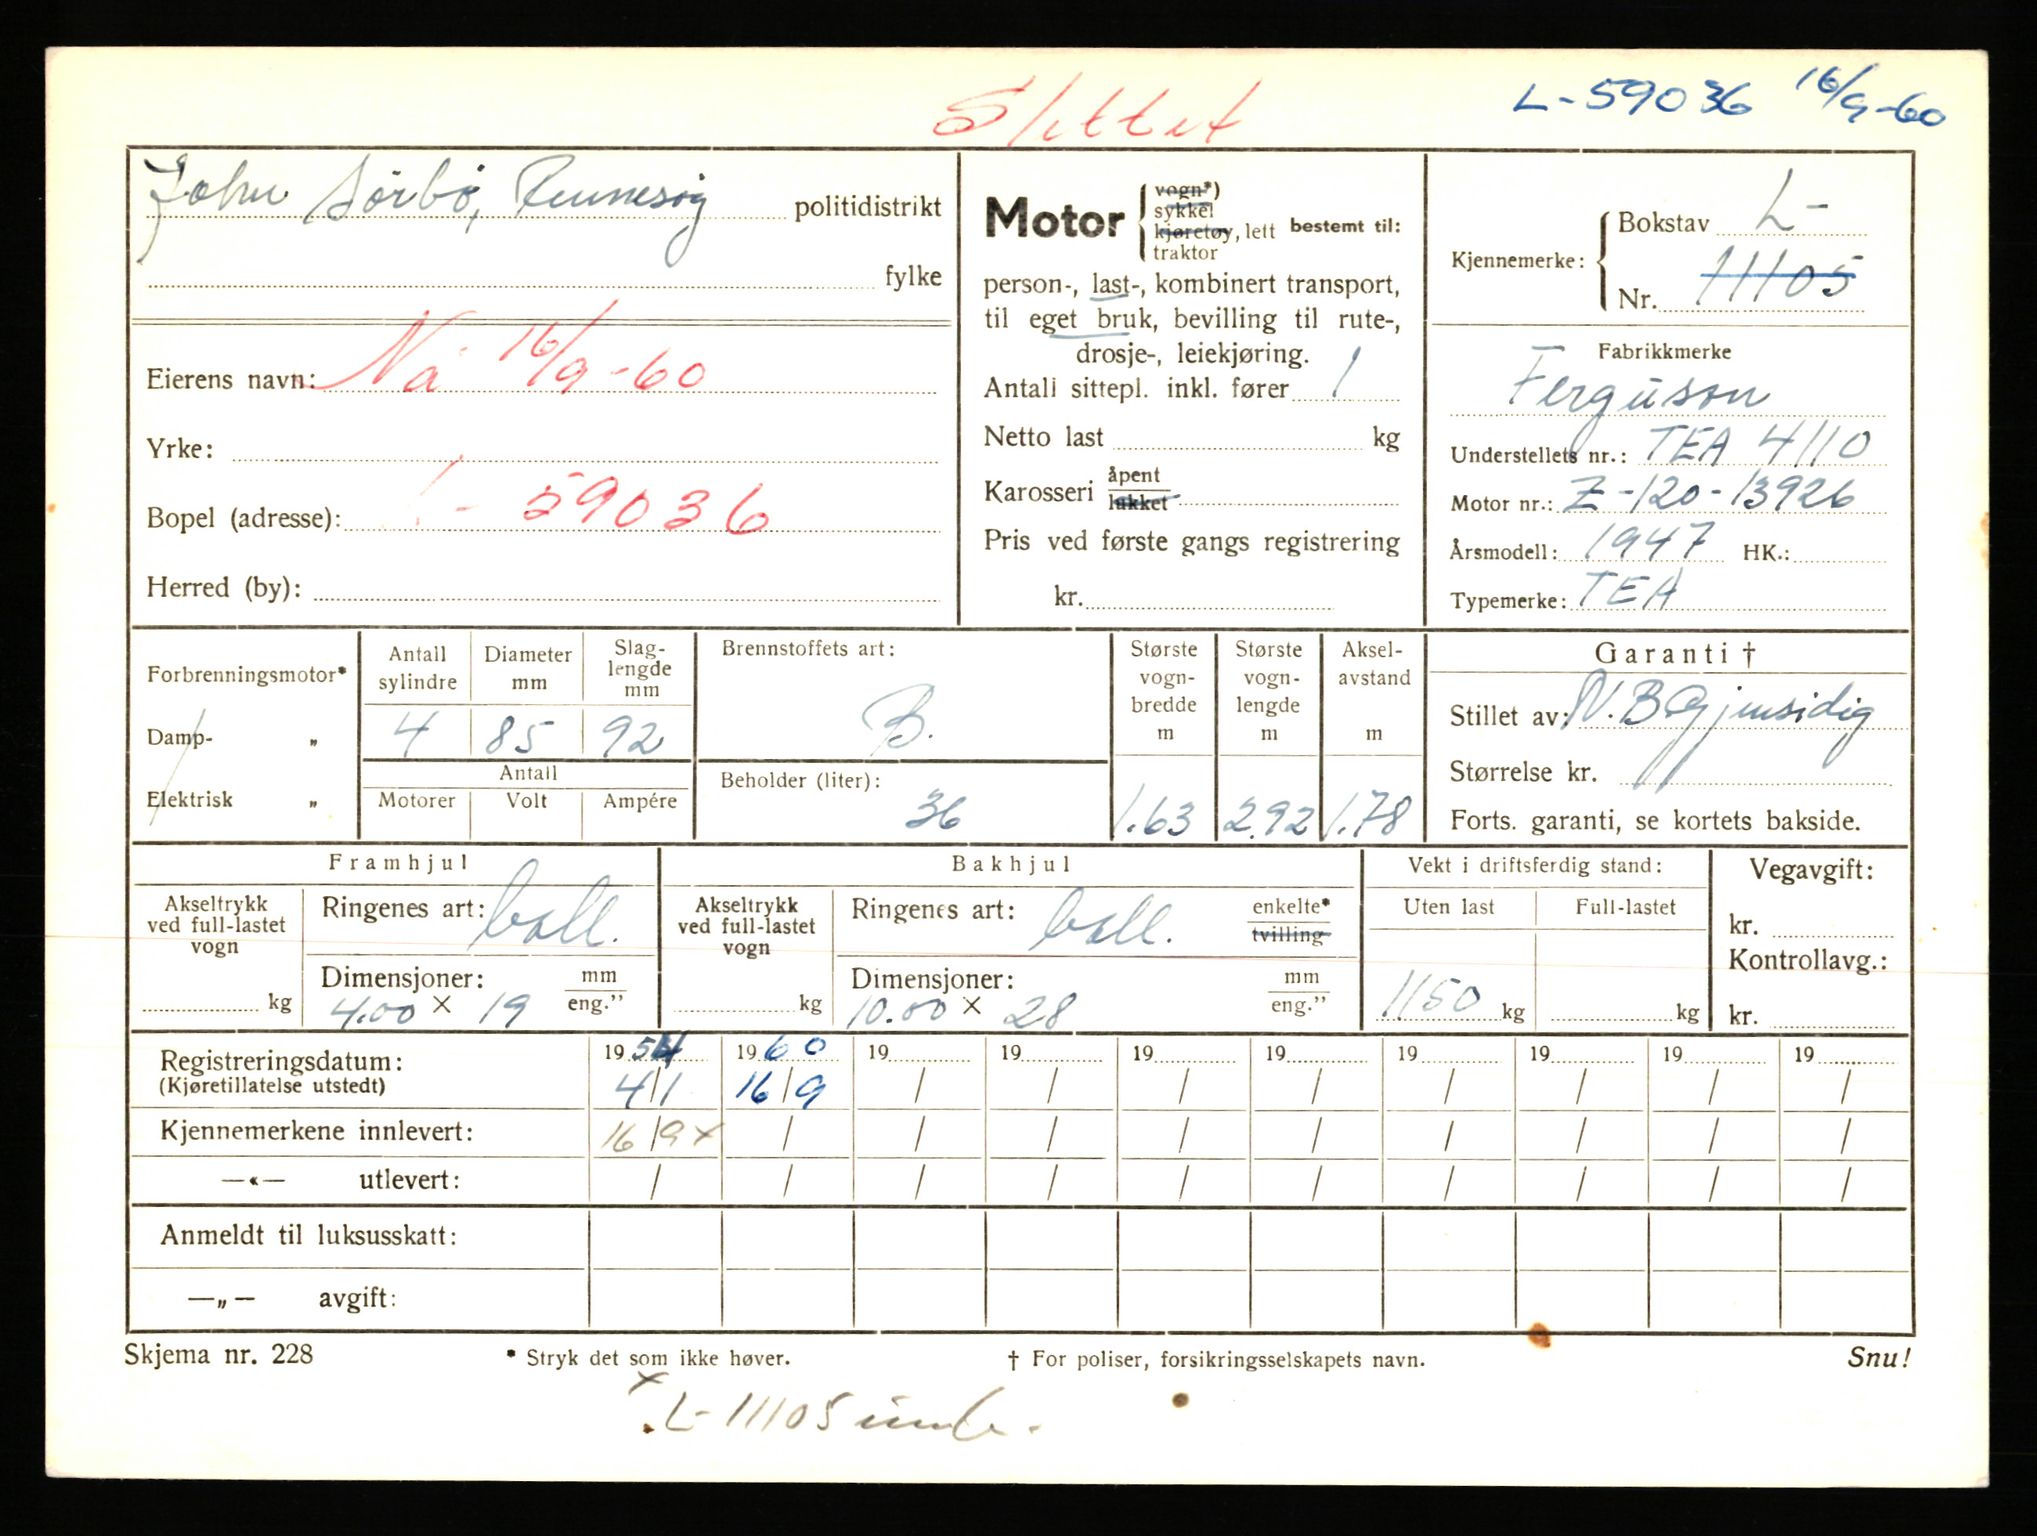 Slettet
L-59036 16/9-60
John Sörbö, Rennesøy politidistrikt
fylke
Eierens navn: Nå 16/9-60
Yrke:
Bopel (adresse): L- 59036
Herred (by):
Motor { vogn*) sykkel kjøretøy, lett traktor bestemt til:
person-, last-, kombinert transport,
til eget bruk, bevilling til rute-,
drosje-, leiekjøring.
Antall sittepl. inkl. fører 1
Netto last kg
Karosseri åpent lukket
Pris ved første gangs registrering
kr.
Kjennemerke: { Bokstav L-
Nr. 11105
Fabrikkmerke
Ferguson
Understellets nr.: TEA 4110
Motor nr.: Z-120-13926
Årsmodell: 1947 HK.:
Typemerke: TEA
Forbrenningsmotor*
Damp- „
Elektrisk „
Antall sylindre Diameter mm Slag-lengde mm
4 85 92
Antall
Motorer Volt Ampére
Brennstoffets art:
B.
Beholder (liter):
36
Største vogn-bredde m
1.63
Største vogn-lengde m
2.92
Aksel-avstand m
1.78
Garanti †
Stillet av: N.B Gjensidig
Størrelse kr.
Forts. garanti, se kortets bakside.
Framhjul
Akseltrykk ved full-lastet vogn
kg
Ringenes art: ball.
Dimensjoner: mm eng.”
4.00 x 19
Bakhjul
Akseltrykk ved full-lastet vogn
kg
Ringenes art: ball. enkelte* tvilling
Dimensjoner: mm eng.”
10.00 x 28
Vekt i driftsferdig stand:
Uten last Full-lastet
1150 kg kg
Vegavgift:
kr.
Kontrollavg.:
kr.
Registreringsdatum: 1954 1960 19 19 19 19 19 19 19 19
(Kjøretillatelse utstedt) 4/1 16/9 / / / / / / / /
Kjennemerkene innlevert: 16/9x / / / / / / / / /
—«— utlevert: / / / / / / / / / /
Anmeldt til luksusskatt:
—„— avgift:
Skjema nr. 228 * Stryk det som ikke høver. † For poliser, forsikringsselskapets navn. Snu!
x L-11105